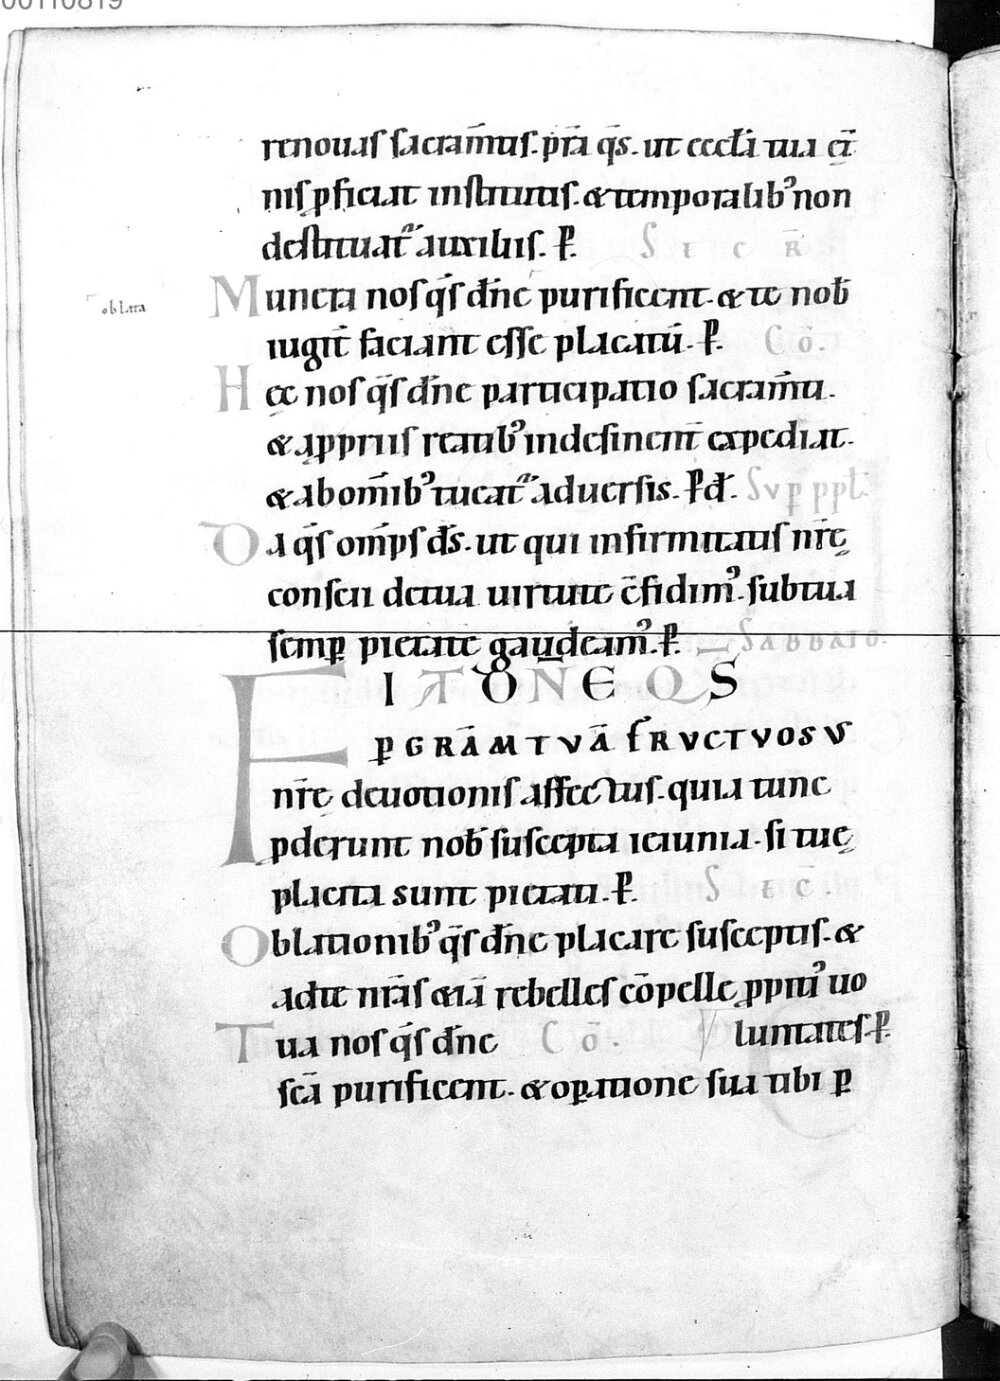 00110819
renouas sacram̄tis. p̄ra q̄s. ut eccłi tua et̄
nis ꝓficiat institutis. & temporalib; non
destituat᷑ auxiliis. P̄. SECR̄
oblata
Muncta nos q̄s dn̄e purificent. & te nob̄
iugit̄ faciant esse placatū. P̄. Cō.
Hec nos q̄s dn̄e participatio sacram̄ti.
& a ꝓpriis reatib; indesinent̄ expediat.
& ab om̄ib; tueat᷑ aduersis. P̄ d. Sup̱ ppł.
Da q̄s om̄ps ds̄. ut qui infirmitatis nr̄ę
conscii de tua uirtute c̄fidim; sub tua
semp̱ pietate gaudeam; P̄. SABBATO.
FIAT DN̄E QS
p̱ GRĀM TUĀ FRUCTUOSUS
nr̄ę deuotionis affectus. quia tunc
ꝓderunt nob̄ suscepta ieiunia. si tuę
placita sunt pietati. P̄. SEC̄.
Oblationib; q̄s dn̄e placare susceptis. &
ad te nr̄as etiā rebelles cōpelle ꝓpiti; uo
luntates. P̄
Tua nos q̄s dn̄e Cō.
sc̄a purificent. & op̱atione sua tibi p̱